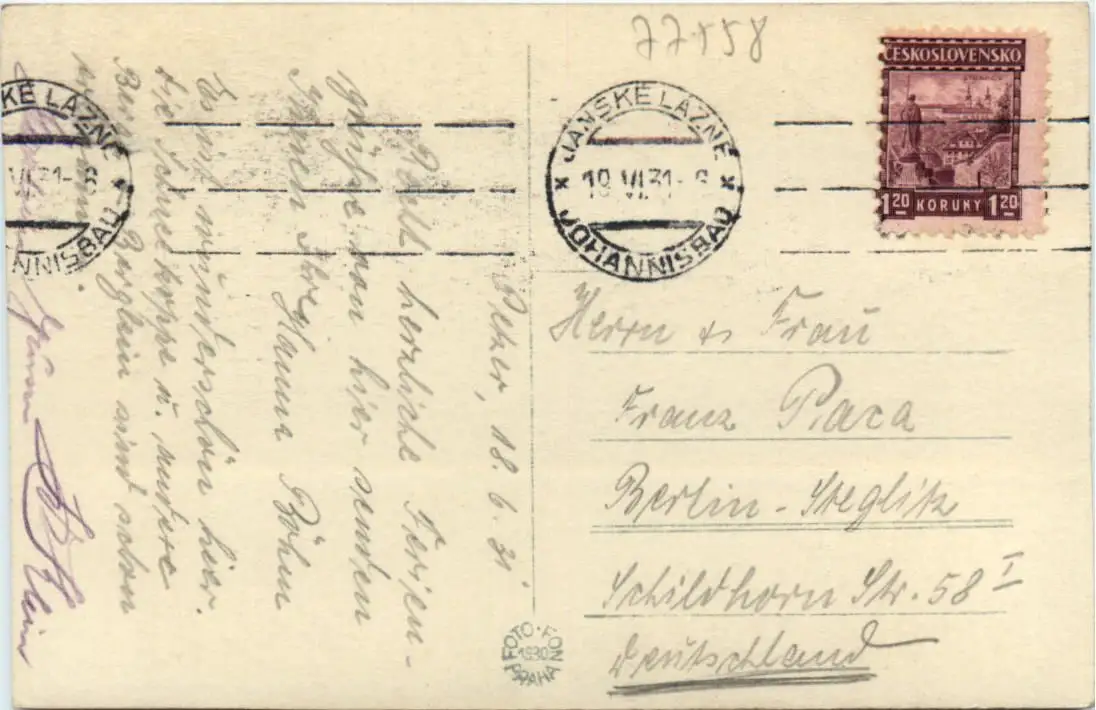 77558
ČESKOSLOVENSKO
1 20 KORUNY 1 20
JÁNSKÉ LÁZNĚ
18 VI.31-8
JOHANNISBAD
KÉ LÁZNĚ
VI.31-8
ANNISBAD
Petzer, 18. 6. 31
Recht herzliche Ferien-
grüße von hier senden
Ihnen Ihre Hanna Böhm
Es ist wunderschön hier.
die Schneekoppe u. andere
Berglein sind schon
Herrn u. Frau
Franz Paca
Berlin-Steglitz
Schildhorn Str. 58 I
Deutschland
FOTO-FON
1930
PRAHA